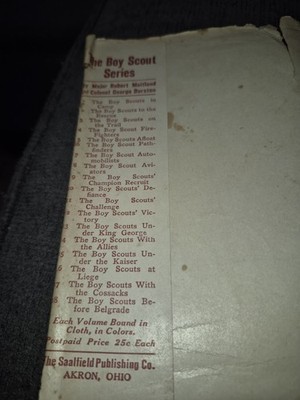 The Boy Scout
Series
By Major Robert Maitland
and Colonel George Durston
The Boy Scouts in
Camp
The Boy Scouts to the
Rescue
The Boy Scouts on
the Trail
4 The Boy Scout Fire-
Fighters
The Boy Scouts Afloat
6 The Boy Scout Path-
finders
7 The Boy Scout Auto-
mobilists
8 The Boy Scout Avi-
ators
9 The Boy Scouts'
Champion Recruit
The Boy Scouts' De-
fiance
The Boy Scouts'
Challenge
The Boy Scouts' Vic-
tory
3 The Boy Scouts Un-
der King George
4 The Boy Scouts With
the Allies
5 The Boy Scouts Un-
der the Kaiser
6 The Boy Scouts at
Liege
7 The Boy Scouts With
the Cossacks
8 The Boy Scouts Be-
fore Belgrade
Each Volume Bound in
Cloth, in Colors.
Postpaid Price 25c Each
The Saalfield Publishing Co.
AKRON, OHIO